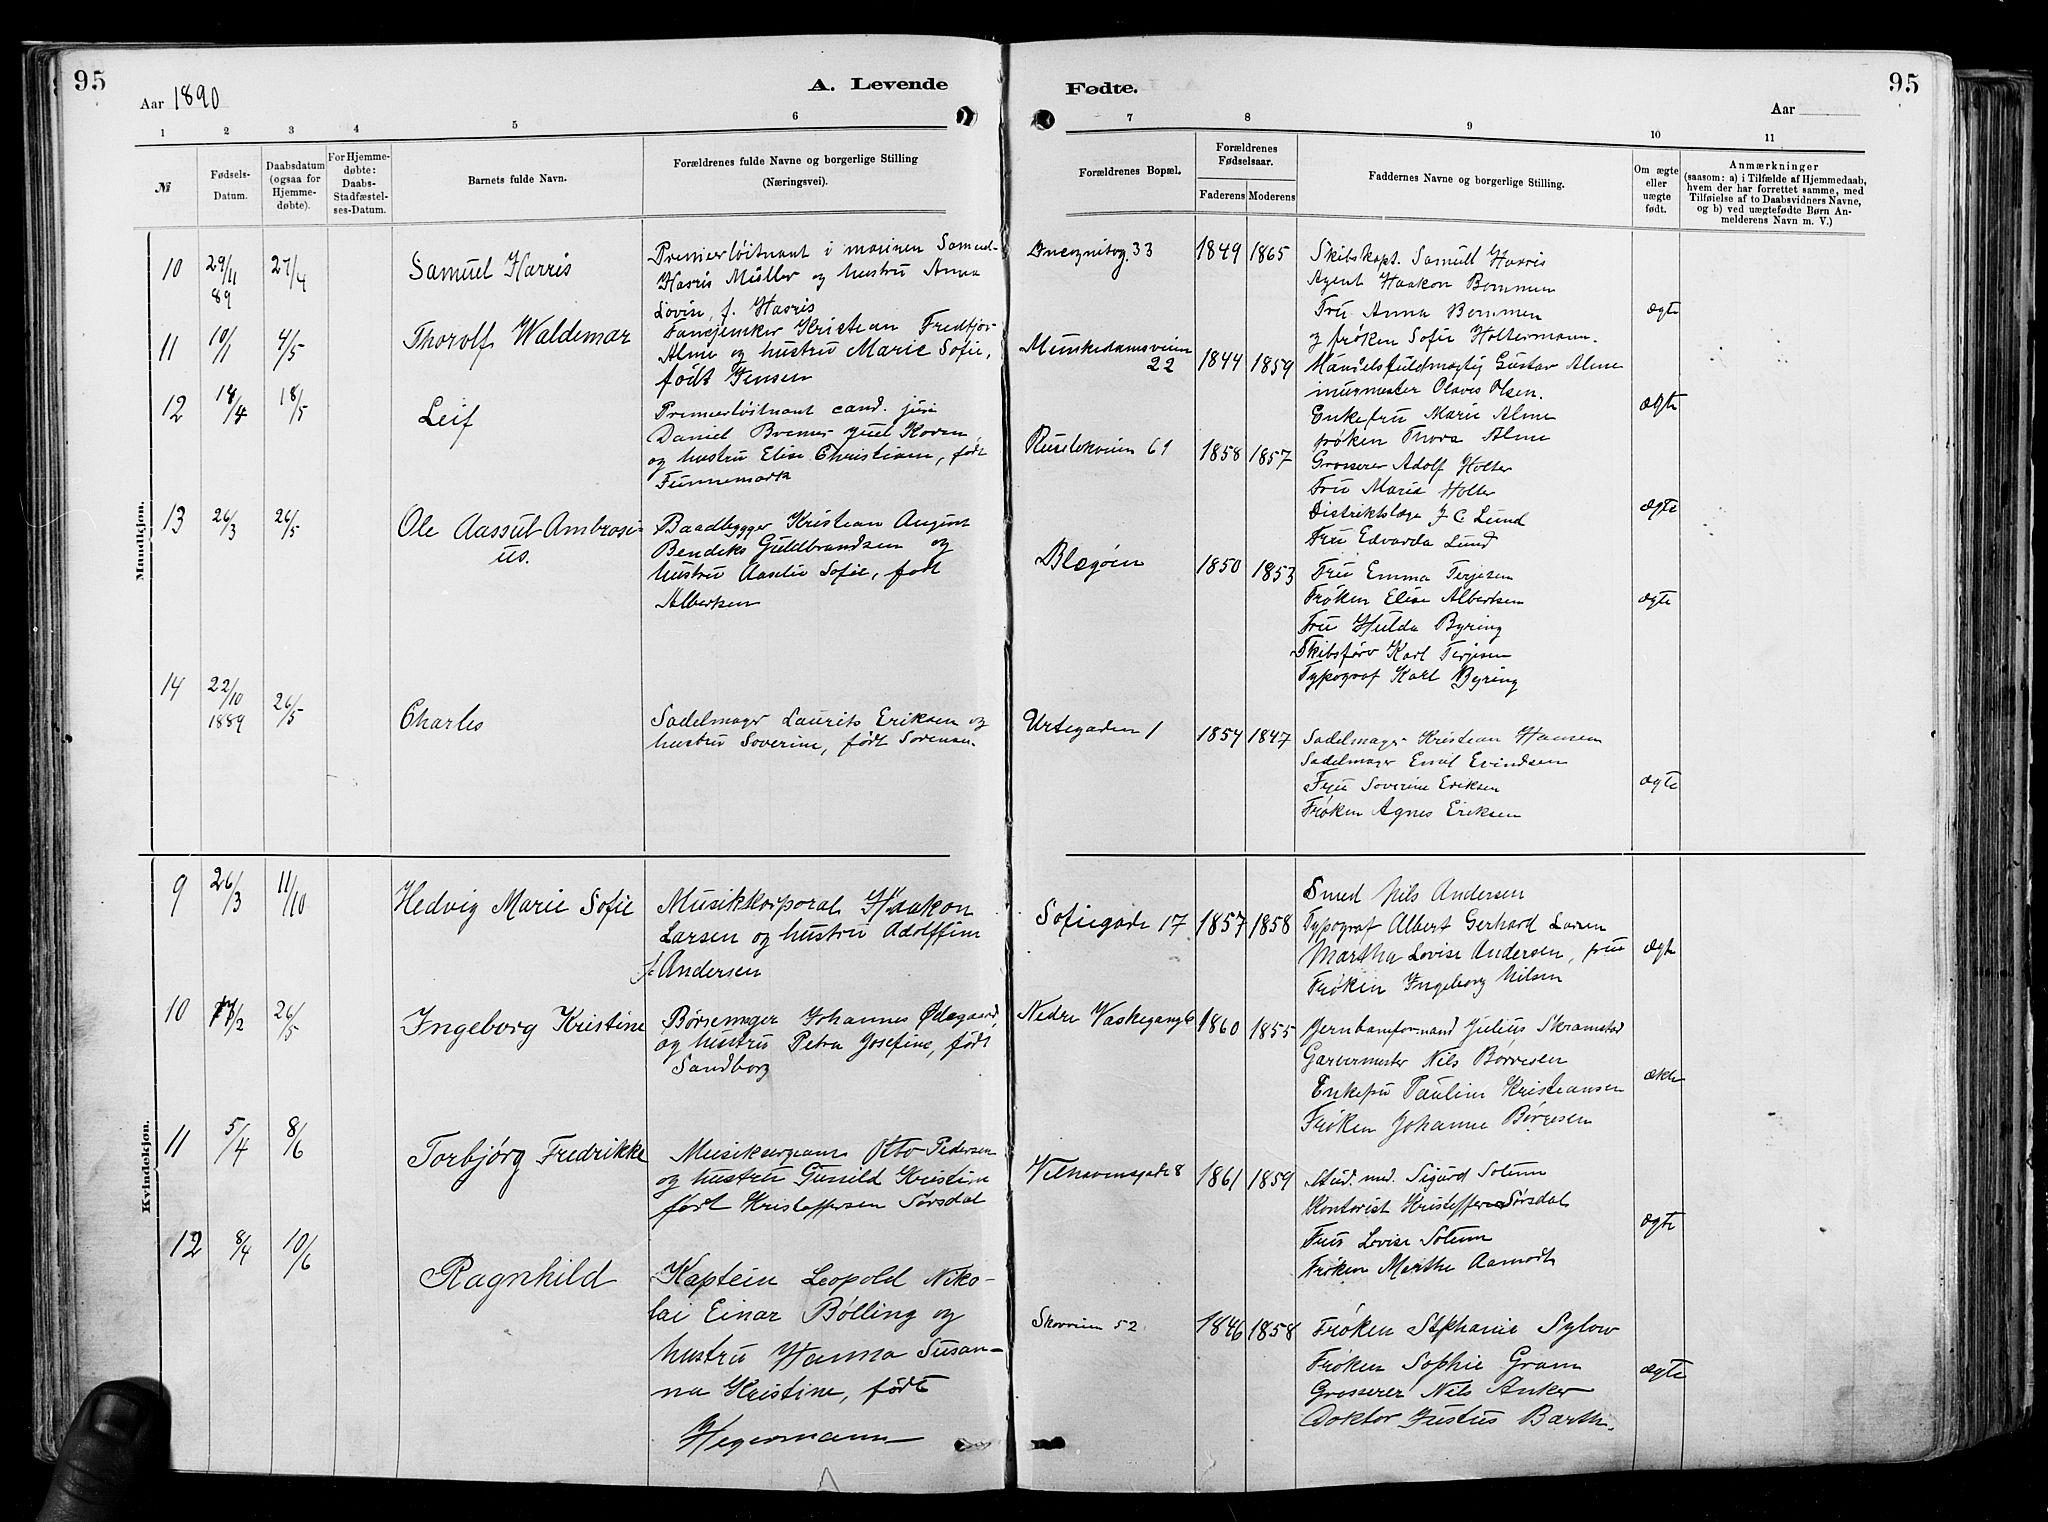 95
Aar 1890
A. Levende
1 2 3 4 5 6
№
Fødsels-
Datum.
Daabsdatum
(ogsaa for
Hjemme-
døbte).
For Hjemme-
døbte:
Daabs-
Stadfæstel-
ses-Datum.
Barnets fulde Navn.
Forældrenes fulde Navne og borgerlige Stilling
(Næringsvei).
Mandkjøn.
10 29/11 89 27/4 Samuel Harris
Premierløitnant i marinen Samuel
Harris Müller og hustru Anna
Lovise, f. Harris
11 10/1 4/5 Thorolf Waldemar
Kristian
Alme og hustru Marie Sofie,
født Jensen
12 14/4 18/5 Leif
Premierløitnant cand. juris
Daniel Bremer Juel Koren
og hustru Elise Christiane, født
Funnemark
13 26/3 26/5 Ole Aassul Ambrosi-
us.
Baadbygger Kristian August
Bendeks Guldbrandsen og
hustru Aaselie Sofie, født
Albertsen
14 22/10 1889 26/5 Charles
Sadelmager Laurits Eriksen og
hustru Soverine, født Sørensen.
Kvindekjøn.
9 26/3 11/10 Hedvig Marie Sofie
Musikkorporal Haakon
Larsen og hustru Adolffine
f. Andersen
10 26/5 Ingeborg Kristine
Børsemager Johannes Ødegaard
og hustru Petra Josefine, født
Sandborg
11 5/4 8/6 Torbjørg Fredrikke
Musiksergeant Otto Pedersen
og hustru Gunild Kristine
født Kristoffersen Sørsdal
12 8/4 10/6 Ragnhild
Kaptein Leopold Niko-
lai Einar Bølling og
hustru Hanna Susan-
na Kristine, født
Hegermann
95
Fødte.
Aar
7 8 9 10 11
Forældrenes Bopæl.
Forældrenes
Fødselsaar.
Faderens Moderens
Faddernes Navne og borgerlige Stilling.
Om ægte
eller
uægte
født.
Anmærkninger
(saasom: a) i Tilfælde af Hjemmedaab,
hvem der har forrettet samme, med
Tilføielse af to Daabsvidners Navne,
og b) ved uægtefødte Børn An-
melderens Navn m. V.)
Incognitog. 33 1849 1865 Skibskapt. Samuel Harris
Agent Haakon Bommen
Fru Anna Bommen ægte
og frøken Sofie Holtermann.
Munkedamsveien
22 1844 1859 Handelsfuldmægtig Gustav Alme
murmester Olaves Olsen.
Enkefru Marie Alme ægte
frøken Thora Alme
Ruseløkveien 61 1858 1857 Grosserer Adolf Holter
Fru Marie Holter
Distriktslæge J. C. Lund ægte
Fru Edvarda Lund
Blegøen 1850 1853 Fru Emma Terjesen
Frøken Elise Albertsen ægte
Fru Hulda Byring
Skibsførv Karl Terjesen
Typograf Karl Byring
Urtegaden 1 1854 1847 Sadelmager Kristian Hansen
Sadelmager Emil Evindsen
Fru Soverine Eriksen ægte
Frøken Agnes Eriksen
Smed Nils Andersen
Sofiegade 17 1857 1858 Typograf Albert Gerhard Larsen
Martha Lovise Andersen, frue ægte
Frøken Ingeborg Nilsen
Nedre Vaskegang 6 1860 1855 Jernbaneformand Julius Skramstad
Garvermester Nils Børresen
Enkefru Pauline Kristiansen ækte
Frøken Johanne Børresen
Velhavensgade 8 1861 1859 Stud. med. Sigurd Solum
Kontorist Kristoffersen Sørsdal
Frue Lovise Solum ægte
Frøken Marthe Aamodt
Skovveien 52 1846 1858 Frøken Stephanie Sylow
Frøken Sophie Gram
Grosserer Nils Anker ægte
Doktor Justus Barth.